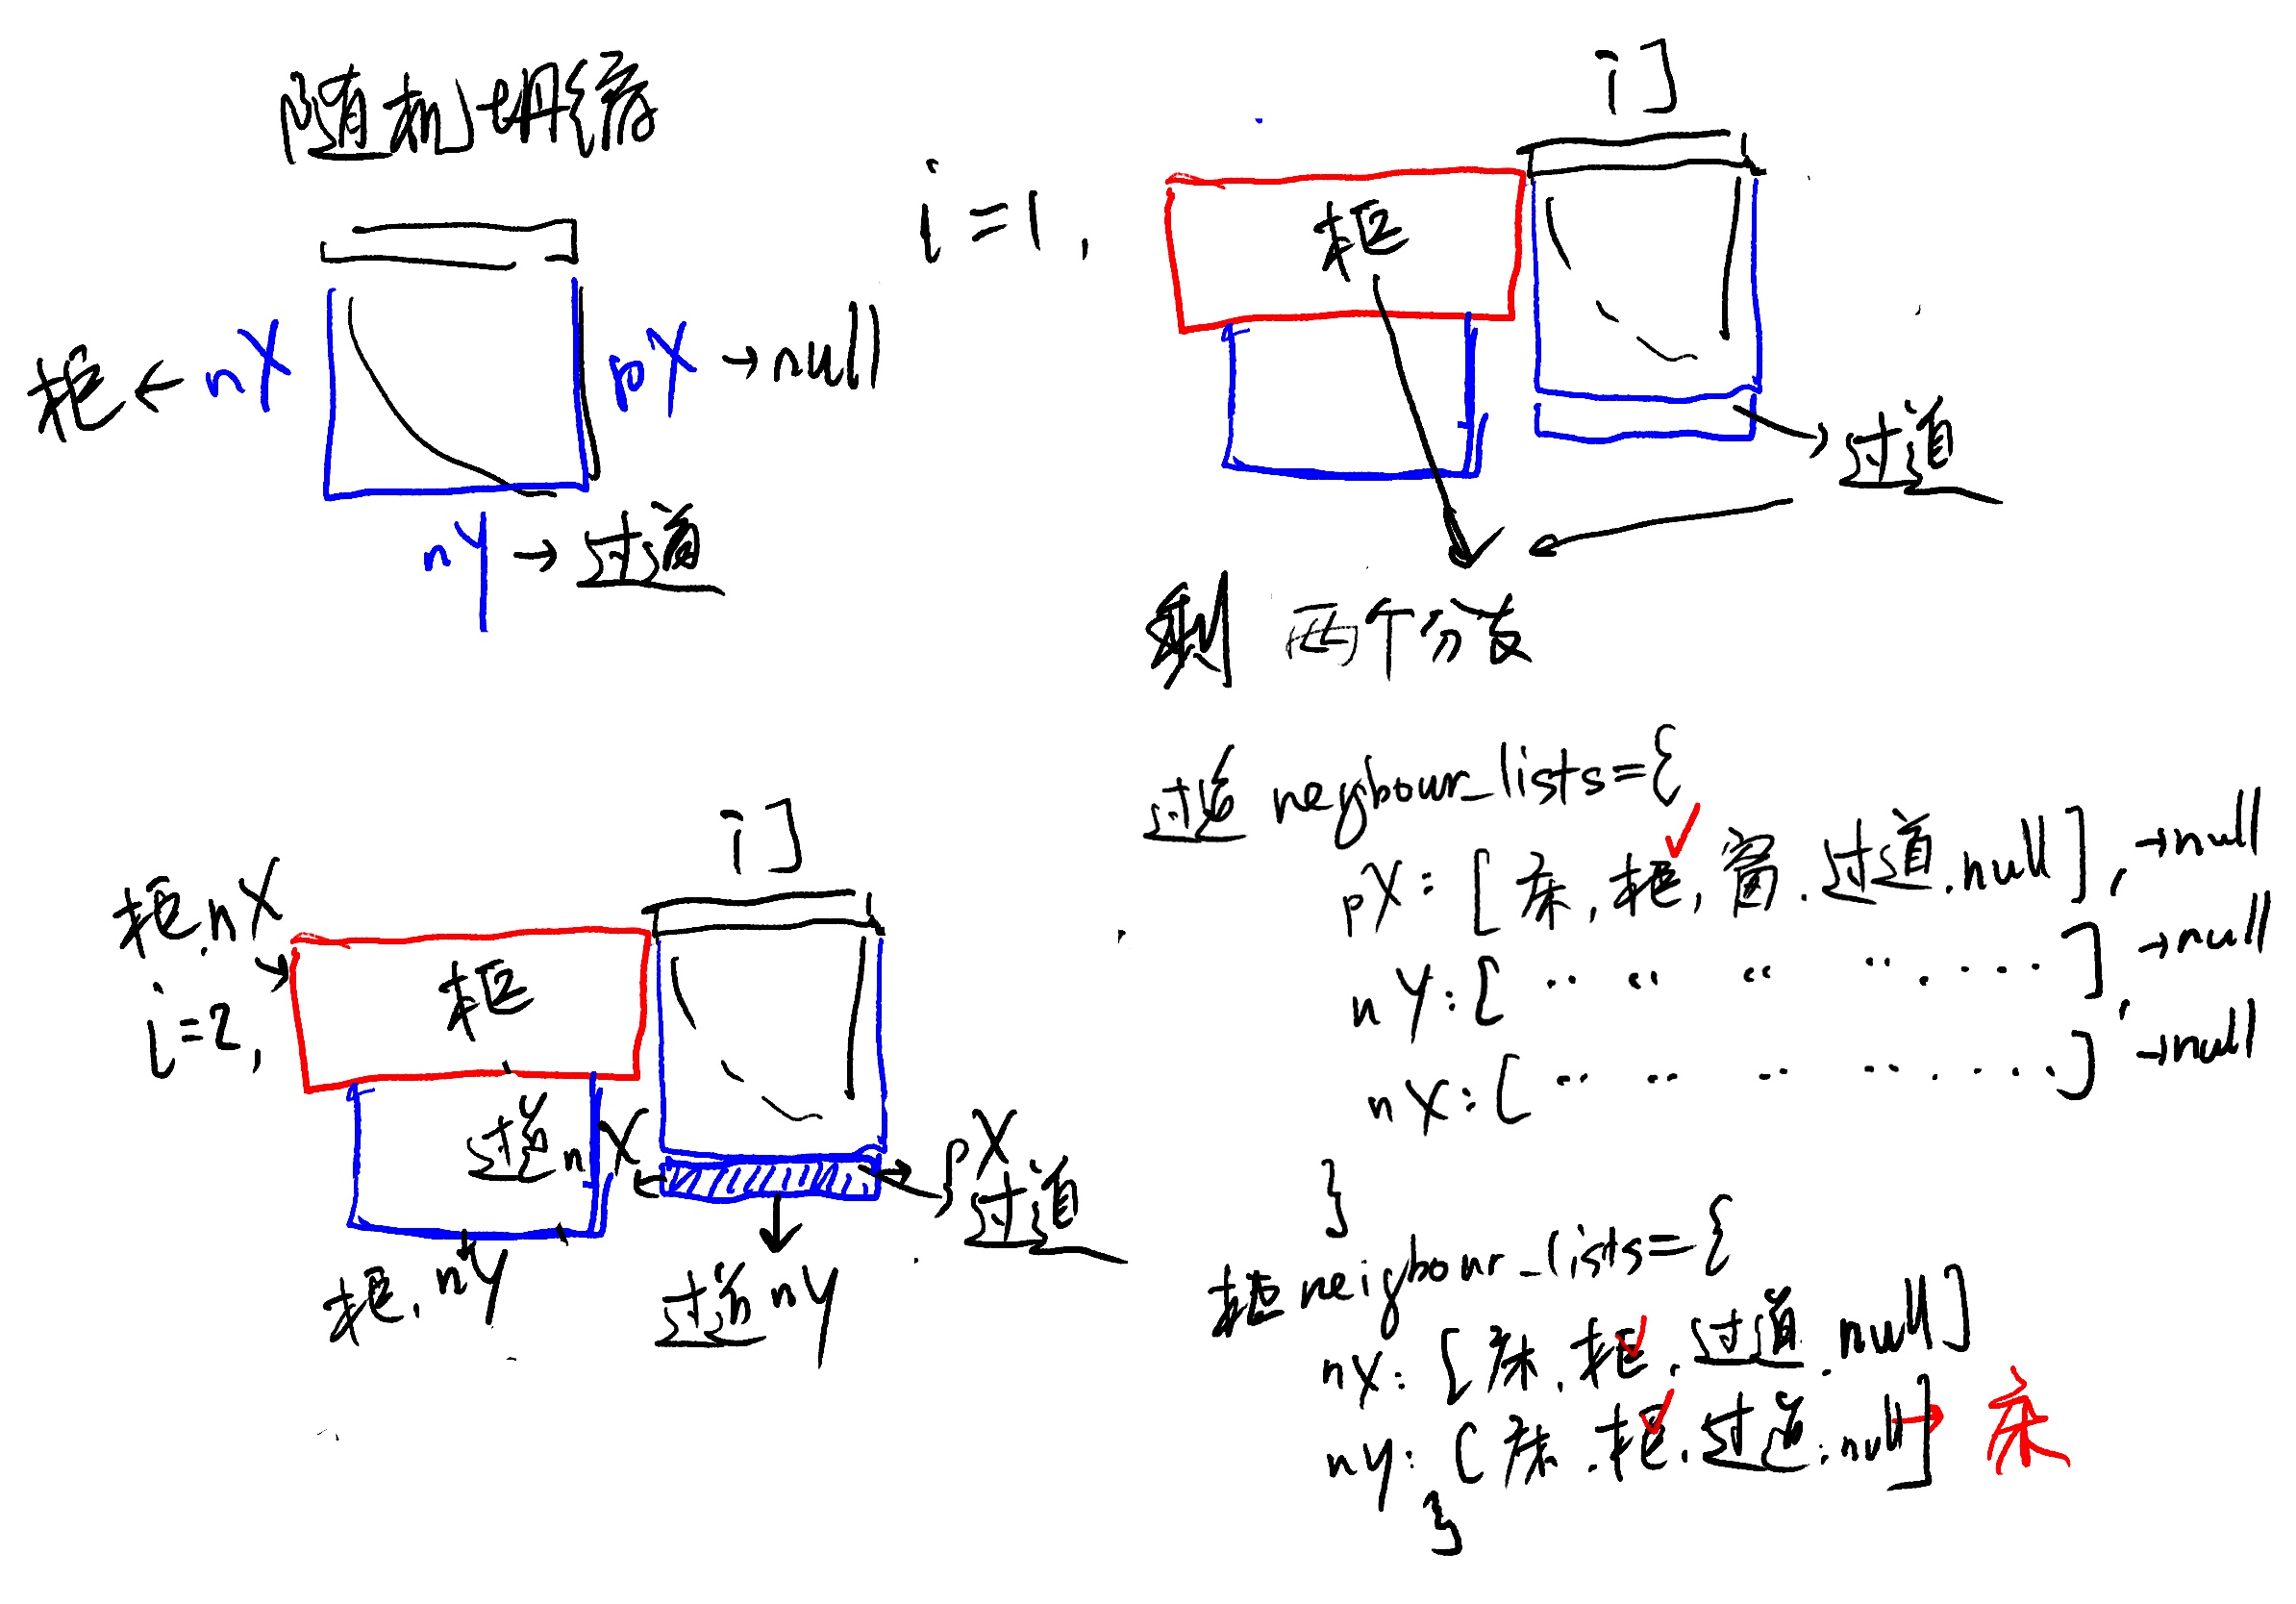 随机坍缩
柜 ← nX
pX → null
nY → 过道
i=1,
门
柜
过道
剩 两个分支
门
柜.nX
i=2,
柜
过道 nX
pX
过道
柜.nY
过道 nY
过道 neighbour_lists={
pX: [床, 柜, 窗, 过道, null], →null
nY: [ ·· ·· ·· ·· ···· ], →null
nX: [ ·· ·· ·· ·· ···· ] →null
}
柜 neighbour_lists={
nX: [床, 柜, 过道, null]
nY: [床, 柜, 过道, null] → 床
}